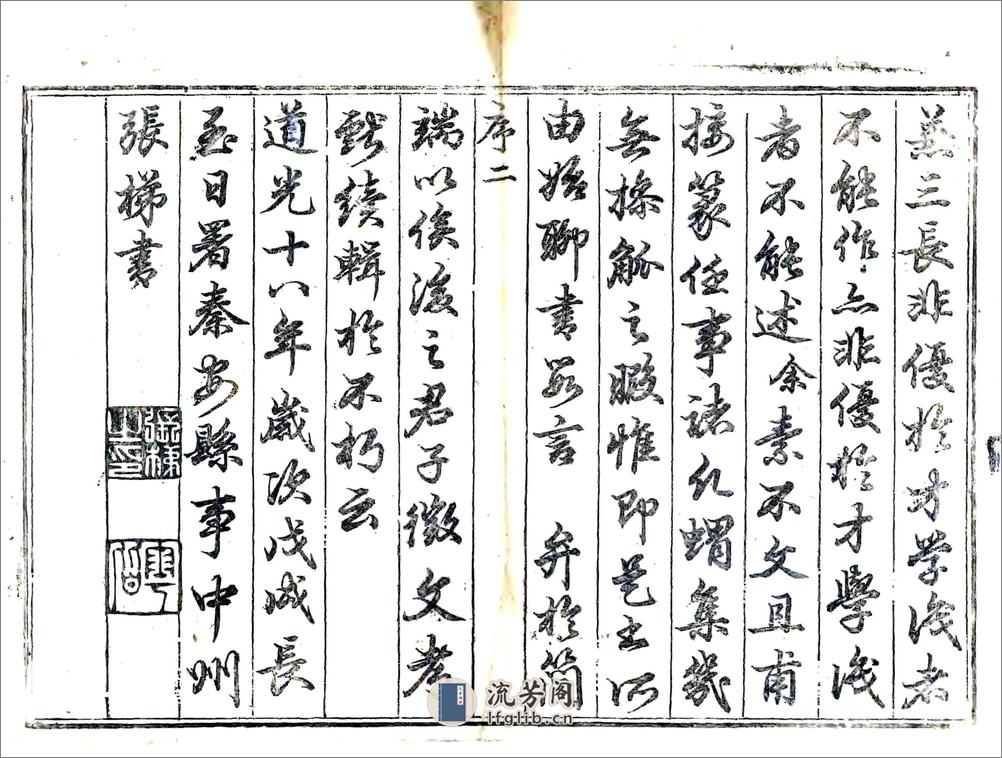 兼三長非優於才学识者
不能作亦非優於才學识
者不能述余素不文且甫
接篆任事諸凡蝟集幾
無操觚之暇惟即是書所
由始聊書數言 弁於簡
序二
端以俟後之君子徵文考
獻續輯於不朽云
道光十八年歲次戊戌長
至日署秦安縣事中州
張梯書
張梯之印
流芳阁
lfglib.cn